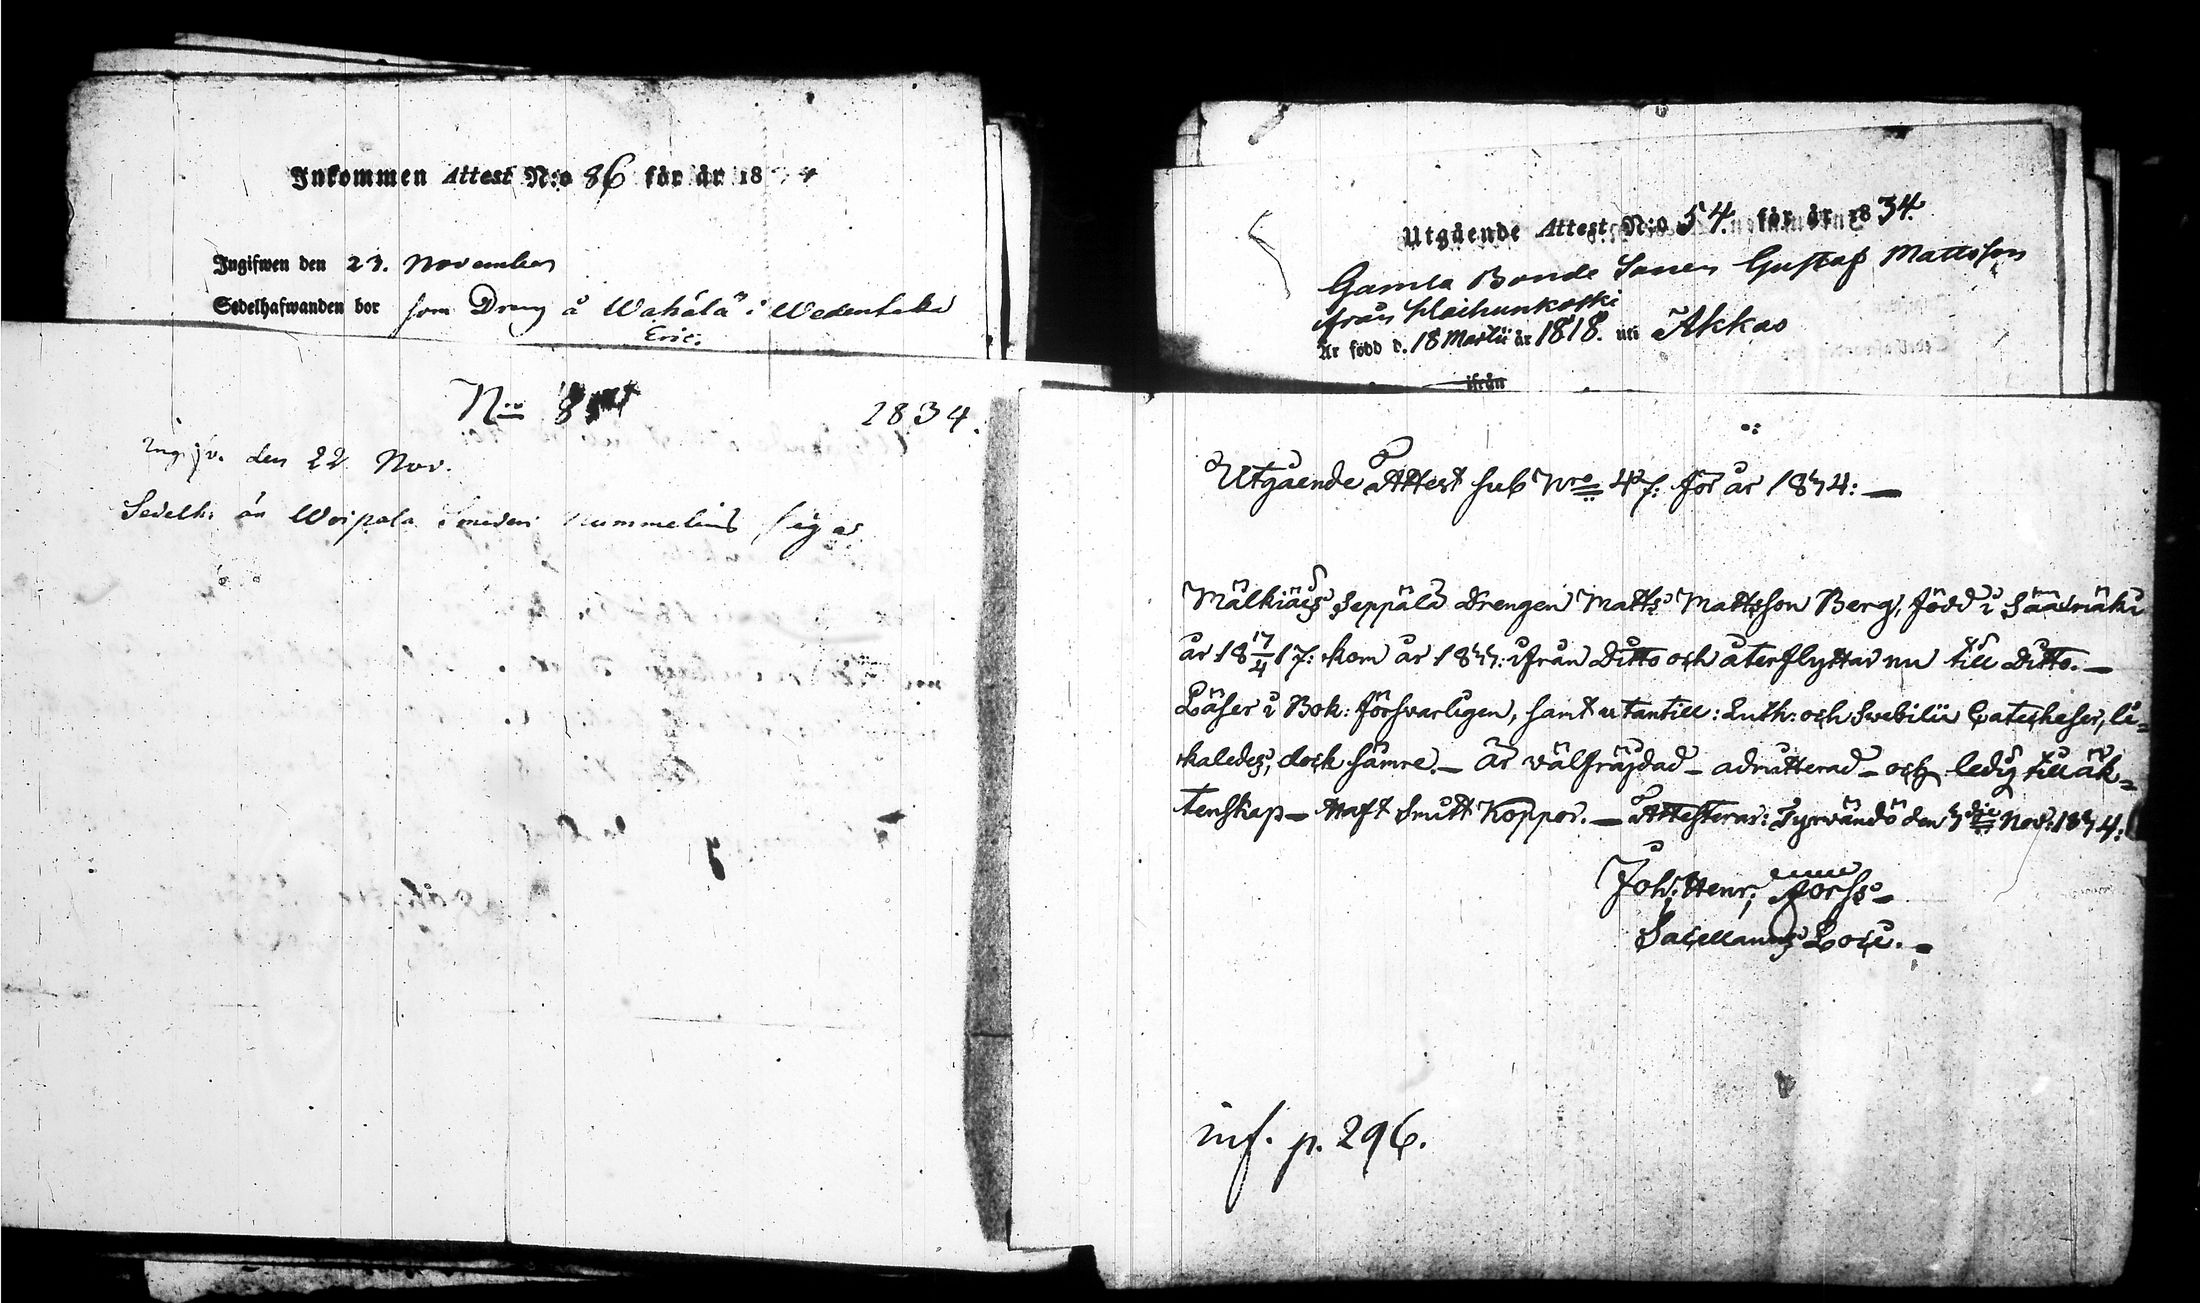 Inkommen Attest N:o 86 för år 18 4
Ingifwen den 23. November
Sedelhafwanden bor som Dreng å Wahálá i Wedentaka
Eric.
N:o 8 1834.
Ingifv. den 22 Nov.
Sedelh: än Woipala Smeden Nummelins
Utgående Attest N:o 54. för år 1834.
Gamla Bonde Sonen Gustaf Mattsson
ifrån
Är född d. 18 Martii år 1818. uti Akkas
ifrån
Utgående Attest sub Nro 47: för år 1834:—
Mälkiäis Seppälä Drengen Matts Mattsson Berg, född i Sääxmäki
år 18 17/4 17: kom år 1833: ifrån Ditto och återflyttar nu till Ditto.—
Läser i Bok: försvarligen, samt utantill: Luth: och Svebilii Catecheser, li=
kaledes, dock sämre.— Är välfräjdad — admitterad — och ledig till äk=
tenskap — Haft Smitt Koppor.— Attesterar: Tyrvändö den 3die Nov: 1834:
Joh: Henr: Forss—
Sacellanus Loci.—
inf. p. 296.